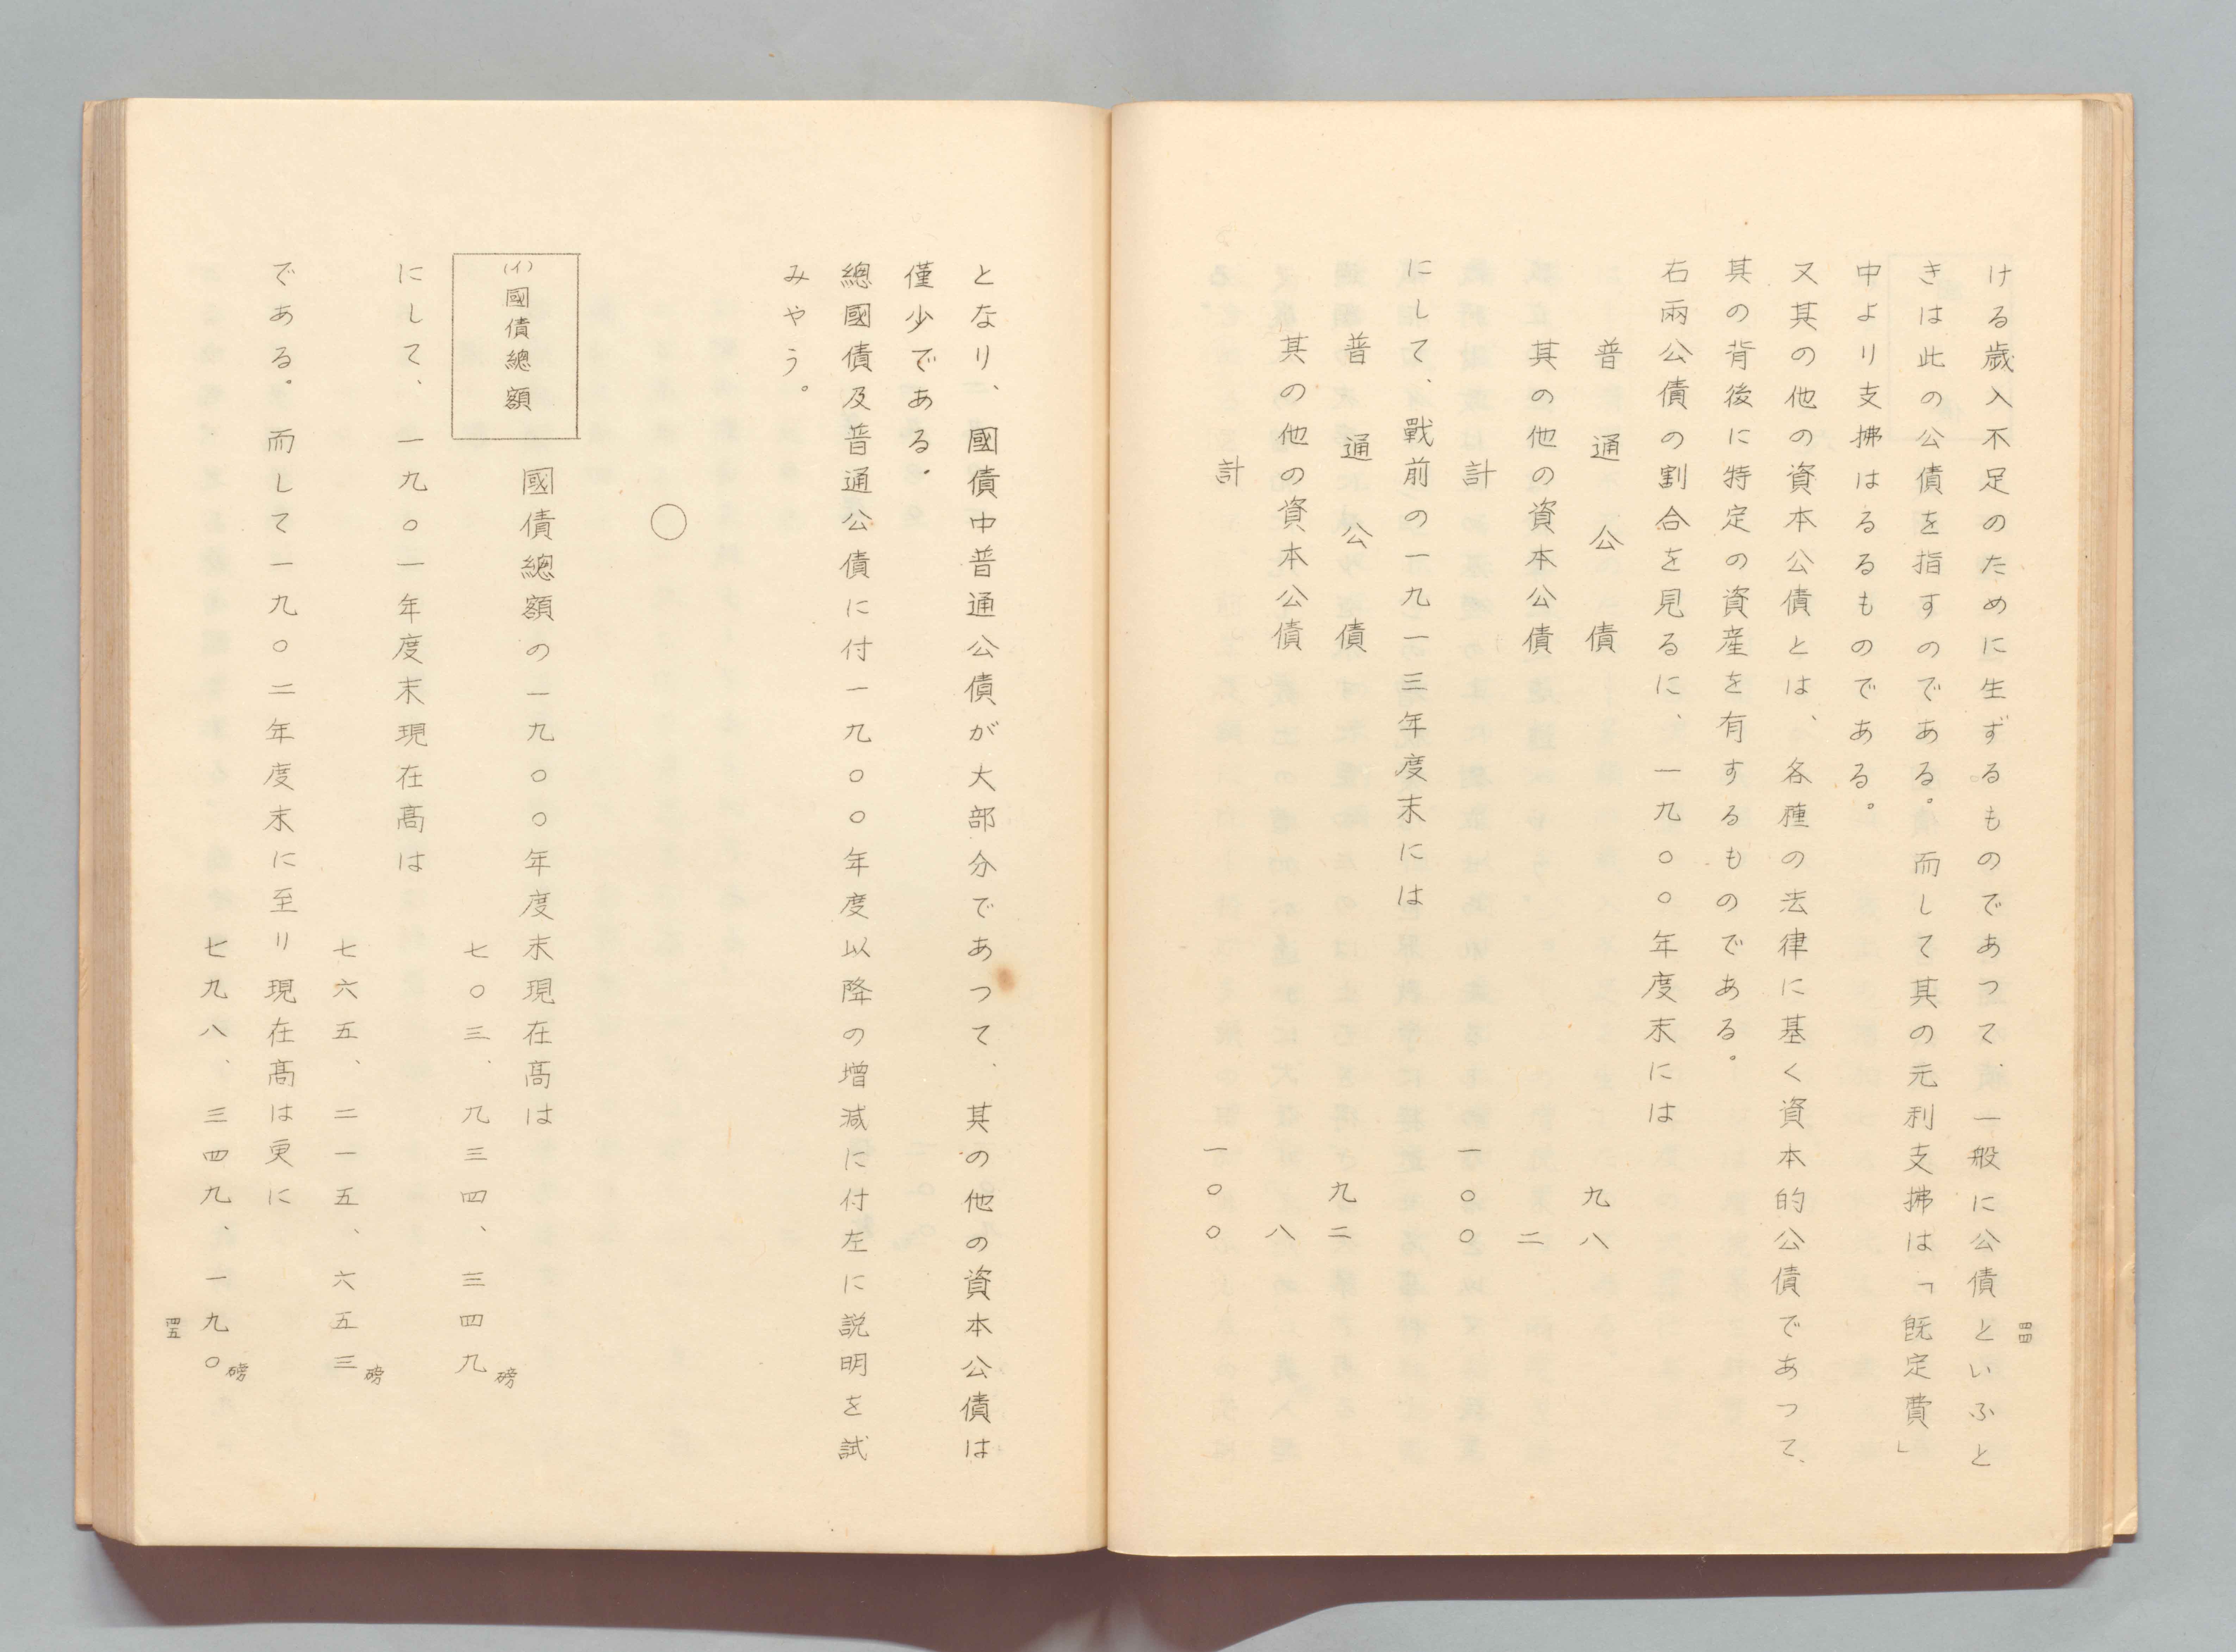 ける歳入不足のために生ずるものであつて、一般に公債といふと
きは此の公債を指すのである。而して其の元利支拂は「既定費」
中より支拂はるるものである。
又其の他の資本公債とは、各種の法律に基く資本的公債であつて、
其の背後に特定の資産を有するものである。
右兩公債の割合を見るに、一九〇〇年度末には
普通公債 九八
其の他の資本公債 二
計 一〇〇
にして、戰前の一九一三年度末には
普通公債 九二
其の他の資本公債 八
計 一〇〇
四四
となり、國債中普通公債が大部分であつて、其の他の資本公債は
僅少である。
總國債及普通公債に付一九〇〇年度以降の增減に付左に説明を試
みやう。
○
(イ)國債總額
國債總額の一九〇〇年度末現在髙は
七〇三、九三四、三四九磅
にして、一九〇一年度末現在髙は
七六五、二一五、六五三磅
である。而して一九〇二年度末に至り現在髙は更に
七九八、三四九、一九〇磅
四五